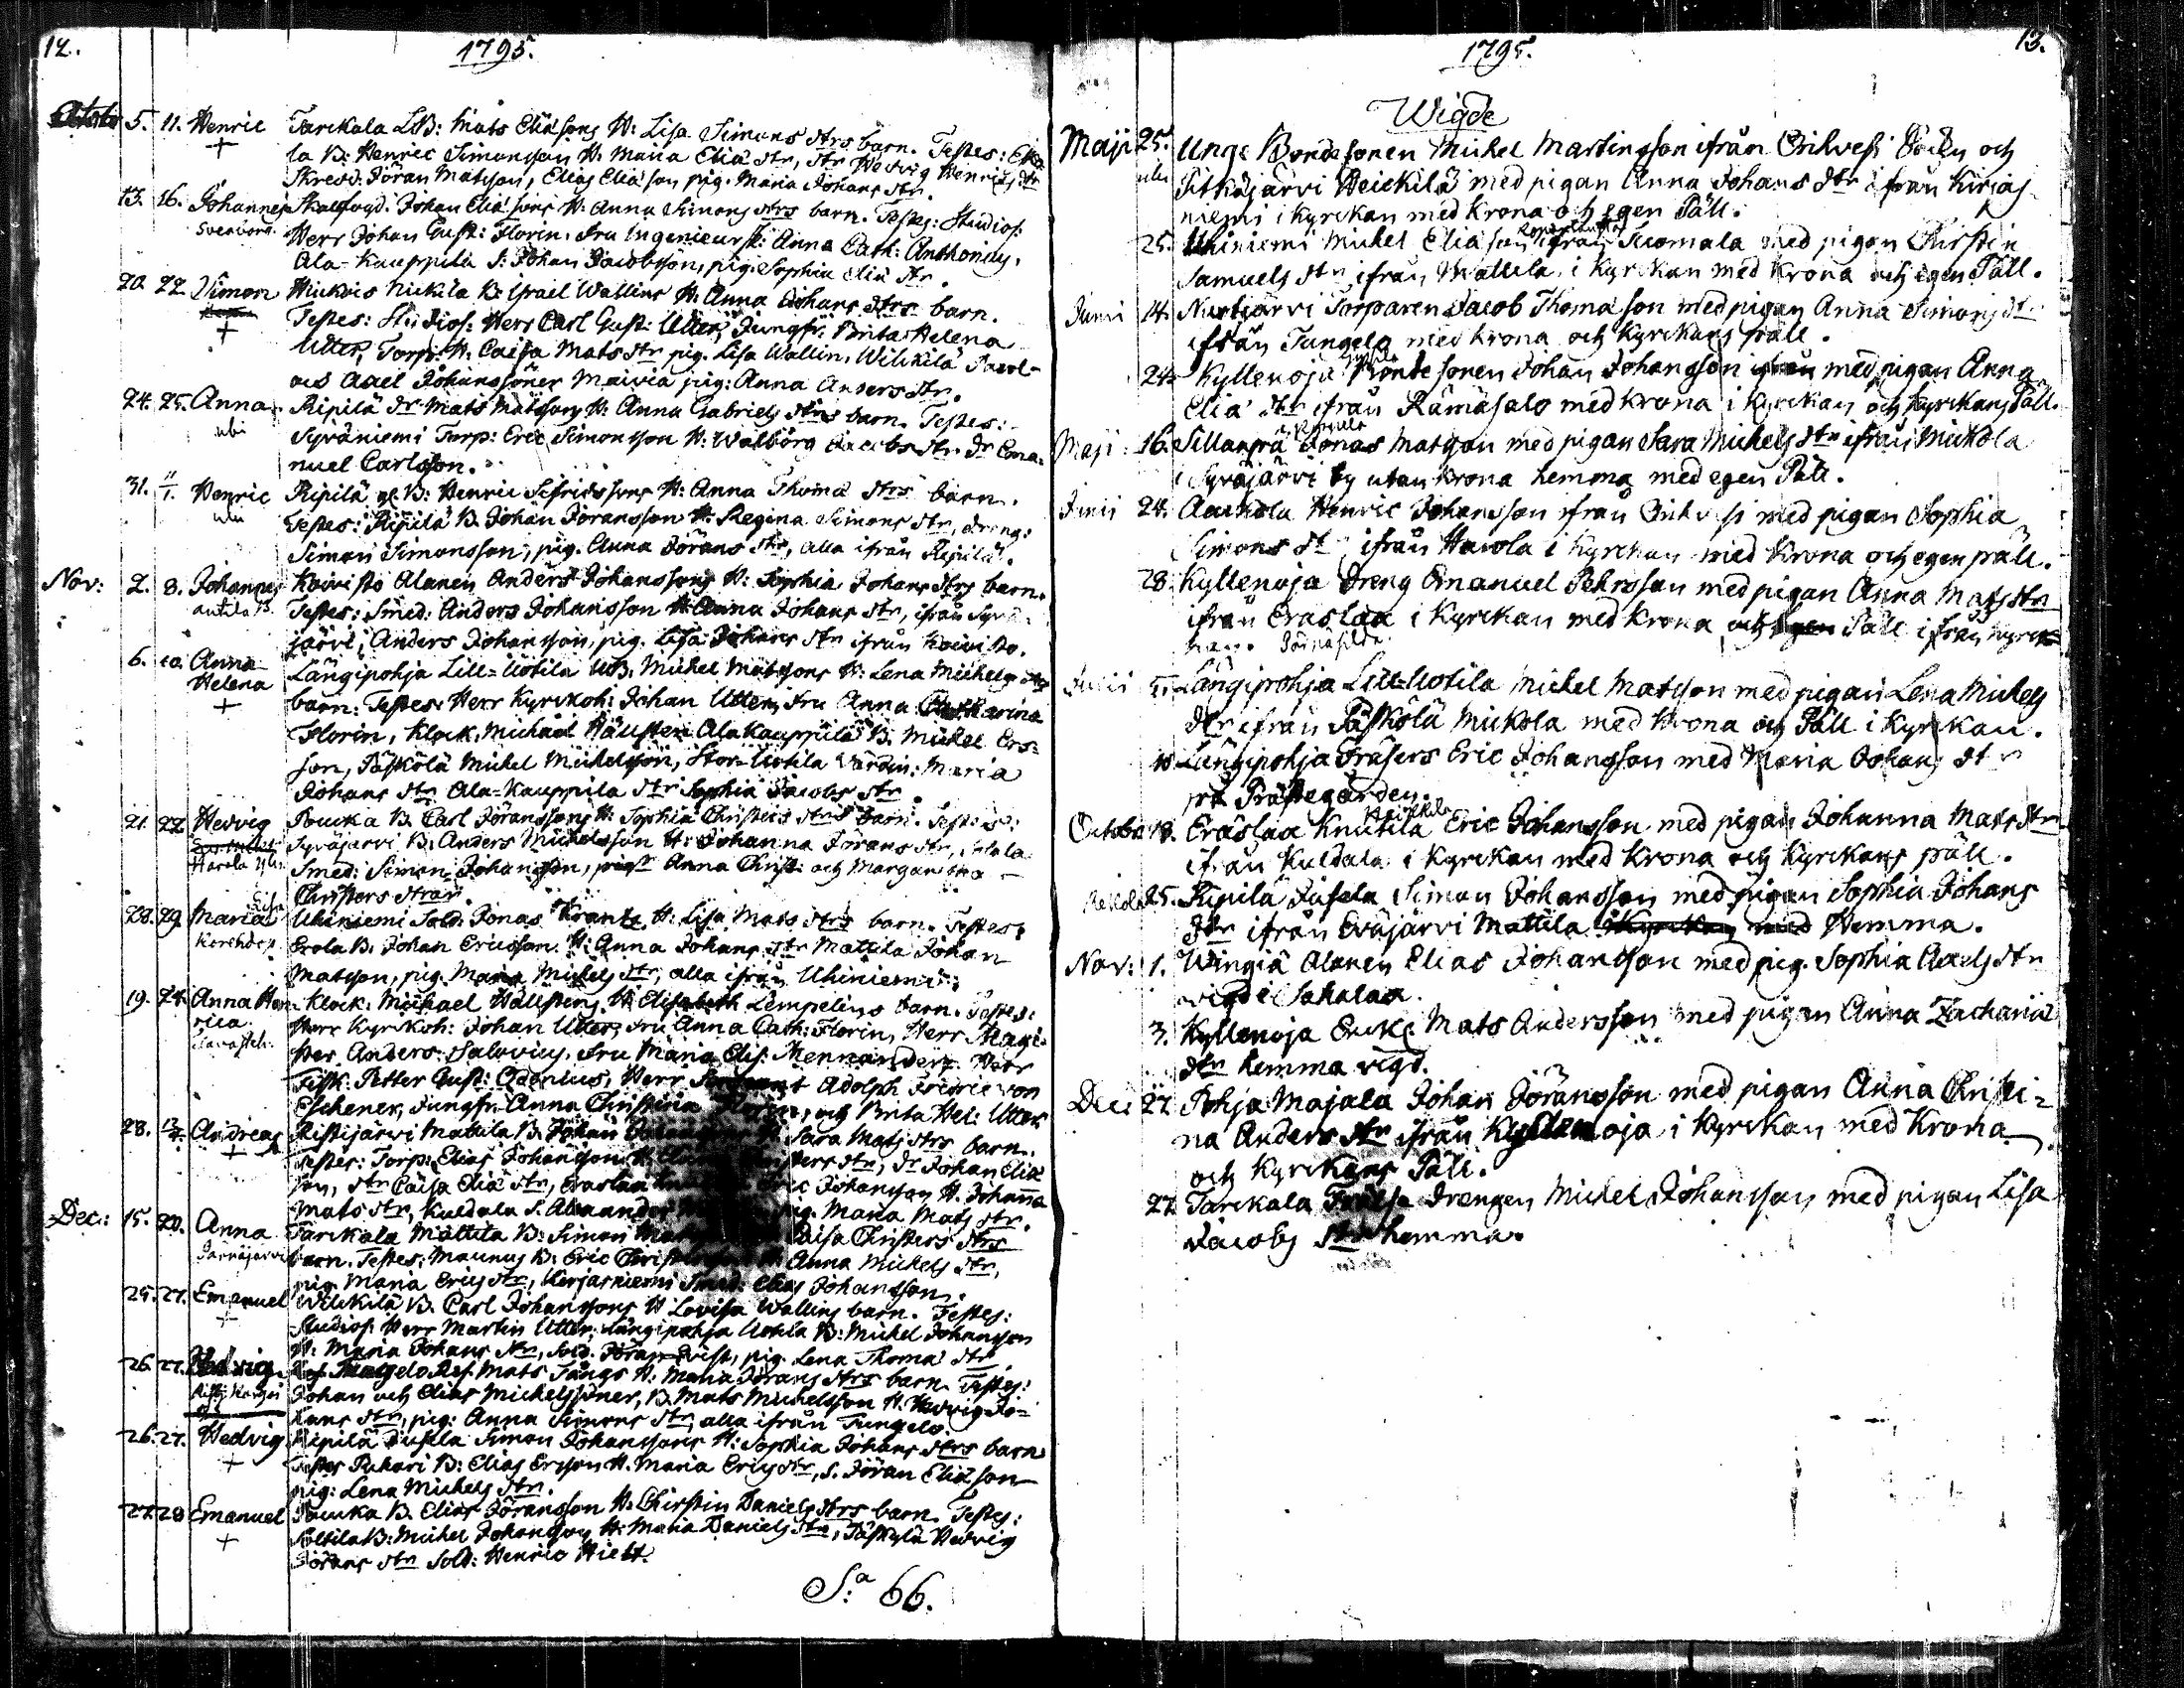 12.
1795.
5. 11. Henric Tarckala LB: Mats Eliæ sons H: Lisa Simons dtrs barn. Testes:
la B: Henric Simonsson H. Maria Eliæ dtr, dtr Hedvig Henrics dtr
Skredd: Jöran Matsson, Elias Eliæ son pig. Maria Johans dtr.
13. 16. Johannes Johan Eliæ sons H: Anna Simons dtrs barn. Testes: Studios:
Herr Johan Gust: Florin. Fru Ingenieursk: Anna Cath: Anthonin,
Ala-Kauppila S: Johan Jacobsson, pig. Sophia Eliæ dtr.
20. 22. Simon Nickila B: Israel Wallins H. Anna Johans dtrs barn.
+ Testes: Studios: Herr Carl Gust: Utter, Jungfr: Brita Helena
Utter, Torp: H. Caisa Mats dtr pig. Lisa Wallin, Wilckilä Jacob
och Axel Johanssöner pig: Anna Anders dtr.
24. 25. Anna Ripilä dr Mats Matssons H: Anna Gabriels dtrs barn. Testes:
ubi Syräniemi Torp: Eric Simonsson H: Walborg Jacobs dtr. dr Ema-
nuel Carlsson.
31. 11/1. Henric Ripilä B: Henric Sifridssons H: Anna Thomæ dtrs barn.
ubi Testes: Ripilä B. Johan Joransson H: Regina Simons dtr, dreng:
Simon Simonsson, pig. Anna Jörans dtr, alla ifrån Ripilä.
Nov: 2. 8. Johannes Koivisto Alanen Anders Johanssons H: Sophia Johans dtrs barn.
Testes: Smed: Anders Johansson H: Anna Johans dtr, ifrån Syrä-
järvi, Anders Johansson, pig. Lisa Johans dtr ifrån Koivisto.
6. 10. Anna Längipohja Lill-Uotila B. Michel Matssons H: Lena Michels dtrs
Helena barn: Testes: Herr Kyrckoh: Johan Utter, Fru Anna Catharina
+ Florin, Klock. Michael Hällsten Alakauppila B. Michel Ers-
son, Päskölä Michel Michelsson, Stor-Uotila Värdin: Maria
Johans dtr Ala-Kauppila dtr Sophia Jacobs dtr.
21. 22. Hedvig Poucka B. Carl Jöranssons H: Sophia Christers dtrs barn. Testes:
Syräjärvi B. Anders Michelsson H: Johanna Jörans dtr,
Smed: Simon Johansson, pigr Anna Christ: och Margaretha
Christers dtrar.
28. 29. Maria Lisa Uhiniemi Sold: Jonas Krantz H: Lisa Mats dtrs barn. Testes:
Erola B. Johan Ericsson H: Anna Johans dtr Mattila Johan
Matsson, pig. Maria Michels dtr, alla ifrån Uhiniemi.
19. 24. Anna Hen- Klock: Michael Hällstens H: Elisabeth Lempelius barn. Testes:
rica Herr Kyrckoh: Johan Utter, Fru Anna Cath: Florin, Herr Magi-
ster Anders Salovius, Fru Maria Elis: Mennander Herr
Fisk. Petter Gust: Adenius, Herr Adolph Fredric von
Eschener, Jungfr. Anna Christina Florin, och Brita Hel: Utter
28. Andreas Ristijärvi Mattila B. Johan Sara Mats dtrs barn.
+ Testes: Torp: Elias Johansson dtr, dr Johan Eliæ
son, dtr Caisa Eliæ dtr, Eraslax Johansson H. Johanna
Mats dtr, Kuldala S. Alexander pig. Maria Mats dtr.
Dec: 15. 20. Anna Tarckala Mattila B: Simon Caisa Christers dtrs
barn. Testes: Maunus B: Eric H: Anna Michels dtr,
pig. Maria Erics dtr, Kirjasniemi Elias Johansson.
25. 27. Emanuel Wilckilä B. Carl Johanssons H Lovisa Wallins barn. Testes:
+ Studios: Herr Martin Utter, Längipohja Uotila B: Michel Johansson
H: Maria Johans dtr, Sold. Jöran Qvist, pig. Lena Thomæ dtr.
26. 27. Hedvig Tungelo Mats Tångs H: Maria Jörans dtrs barn. Testes:
Johan och Elias Michelssöner, B. Mats Michelsson H. Hedvig Jo-
hans dtr, pig: Anna Simons dtr, alla ifrån Tungelo.
26. 27. Hedvig Ripilä Jussila Simon Johanssons H: Sophia Johans dtrs barn
+ Testes Puhari B: Elias Ersson H. Maria Erics dtr, S. Jöran Eliæ son
pig: Lena Michels dtr.
27. 28 Emanuel Poucka B. Elias Jöransson H. Christin Daniels dtrs barn. Testes:
+ Soltila B: Michel Johansson H: Maria Daniels dtr, Päskylä Hedvig
Jörans dtr Sold: Henric Hiett.
S:a 66.
1795.
13.
Wigde
Maji 25. Unge Bondesonen Michel Martinsson ifrån Orihvesi Socken och
Pitkäjärvi Heickilä med pigan Anna Johans dtr ifrån Kirjas-
niemi i kyrckan med Krona och egen Päll.
25. Uhiniemi Michel Eliæ son ifrån Suomala med pigan Christin
Samuels dtr ifrån Mattila i Kyrckan med Krona och egen Päll.
Junii 14. Torparen Jacob Thomæ son med pigan Anna Simons dtr
ifrån Tungelo med krona och Kyrckans päll.
24. Kyllenoja Bondesonen Johan Johansson med pigan Anna
Eliæ dtr ifrån Rämäsalo med krona i Kyrckan och Kyrckans Päll.
Maji 16. Sillanpä Jonas Matsson med pigan Sara Michels dtr ifrån Mickola
i Syräjärvi by utan krona hemma med egen Päll.
Junii 24. Henric Johansson ifrån med pigan Sophia
Simons dtr ifrån Havola i Kyrckan med Krona och egen päll.
28. Kyllenoja Dreng Emanuel Pehrsson med pigan Anna Mats dtr
ifrån Eraslax i Kyrckan med Krona och Päll ifrån kyrc-
kan.
Julii Längipohja Lill-Uotila Michel Matsson med pigan Lena Michels
dtr ifrån Päskölä Mickola med Krona och Päll i Kyrckan.
Längipohja Frasers Eric Johansson med Maria Johans dtr
på Prästegården.
October 18. Eräslax Knutila Heickila Eric Johansson med pigan Johanna Mats dtr
ifrån Kuldala i Kyrckan med Krona och Kyrckans päll.
25. Ripilä Jussila Simon Johansson med pigan Sophia Johans
dtr ifrån Eväjärvi Mattila Hemma.
Nov: 1. Wingiä Alanen Elias Johansson med pig. Sophia Axels dtr
vigd i Sahalax.
3. Kyllenoja Mats Andersson med pigan Anna Zachariæ
dtr hemma vigd.
Dec: 27. Pohja Majala Johan Jöransson med pigan Anna Christi-
na Anders dtr ifrån Kyllenoja i Kyrckan med Krona
och Kyrckans Päll.
27. Tarckala drengen Michel Johansson med pigan Lisa
Jacobs dtr hemma.